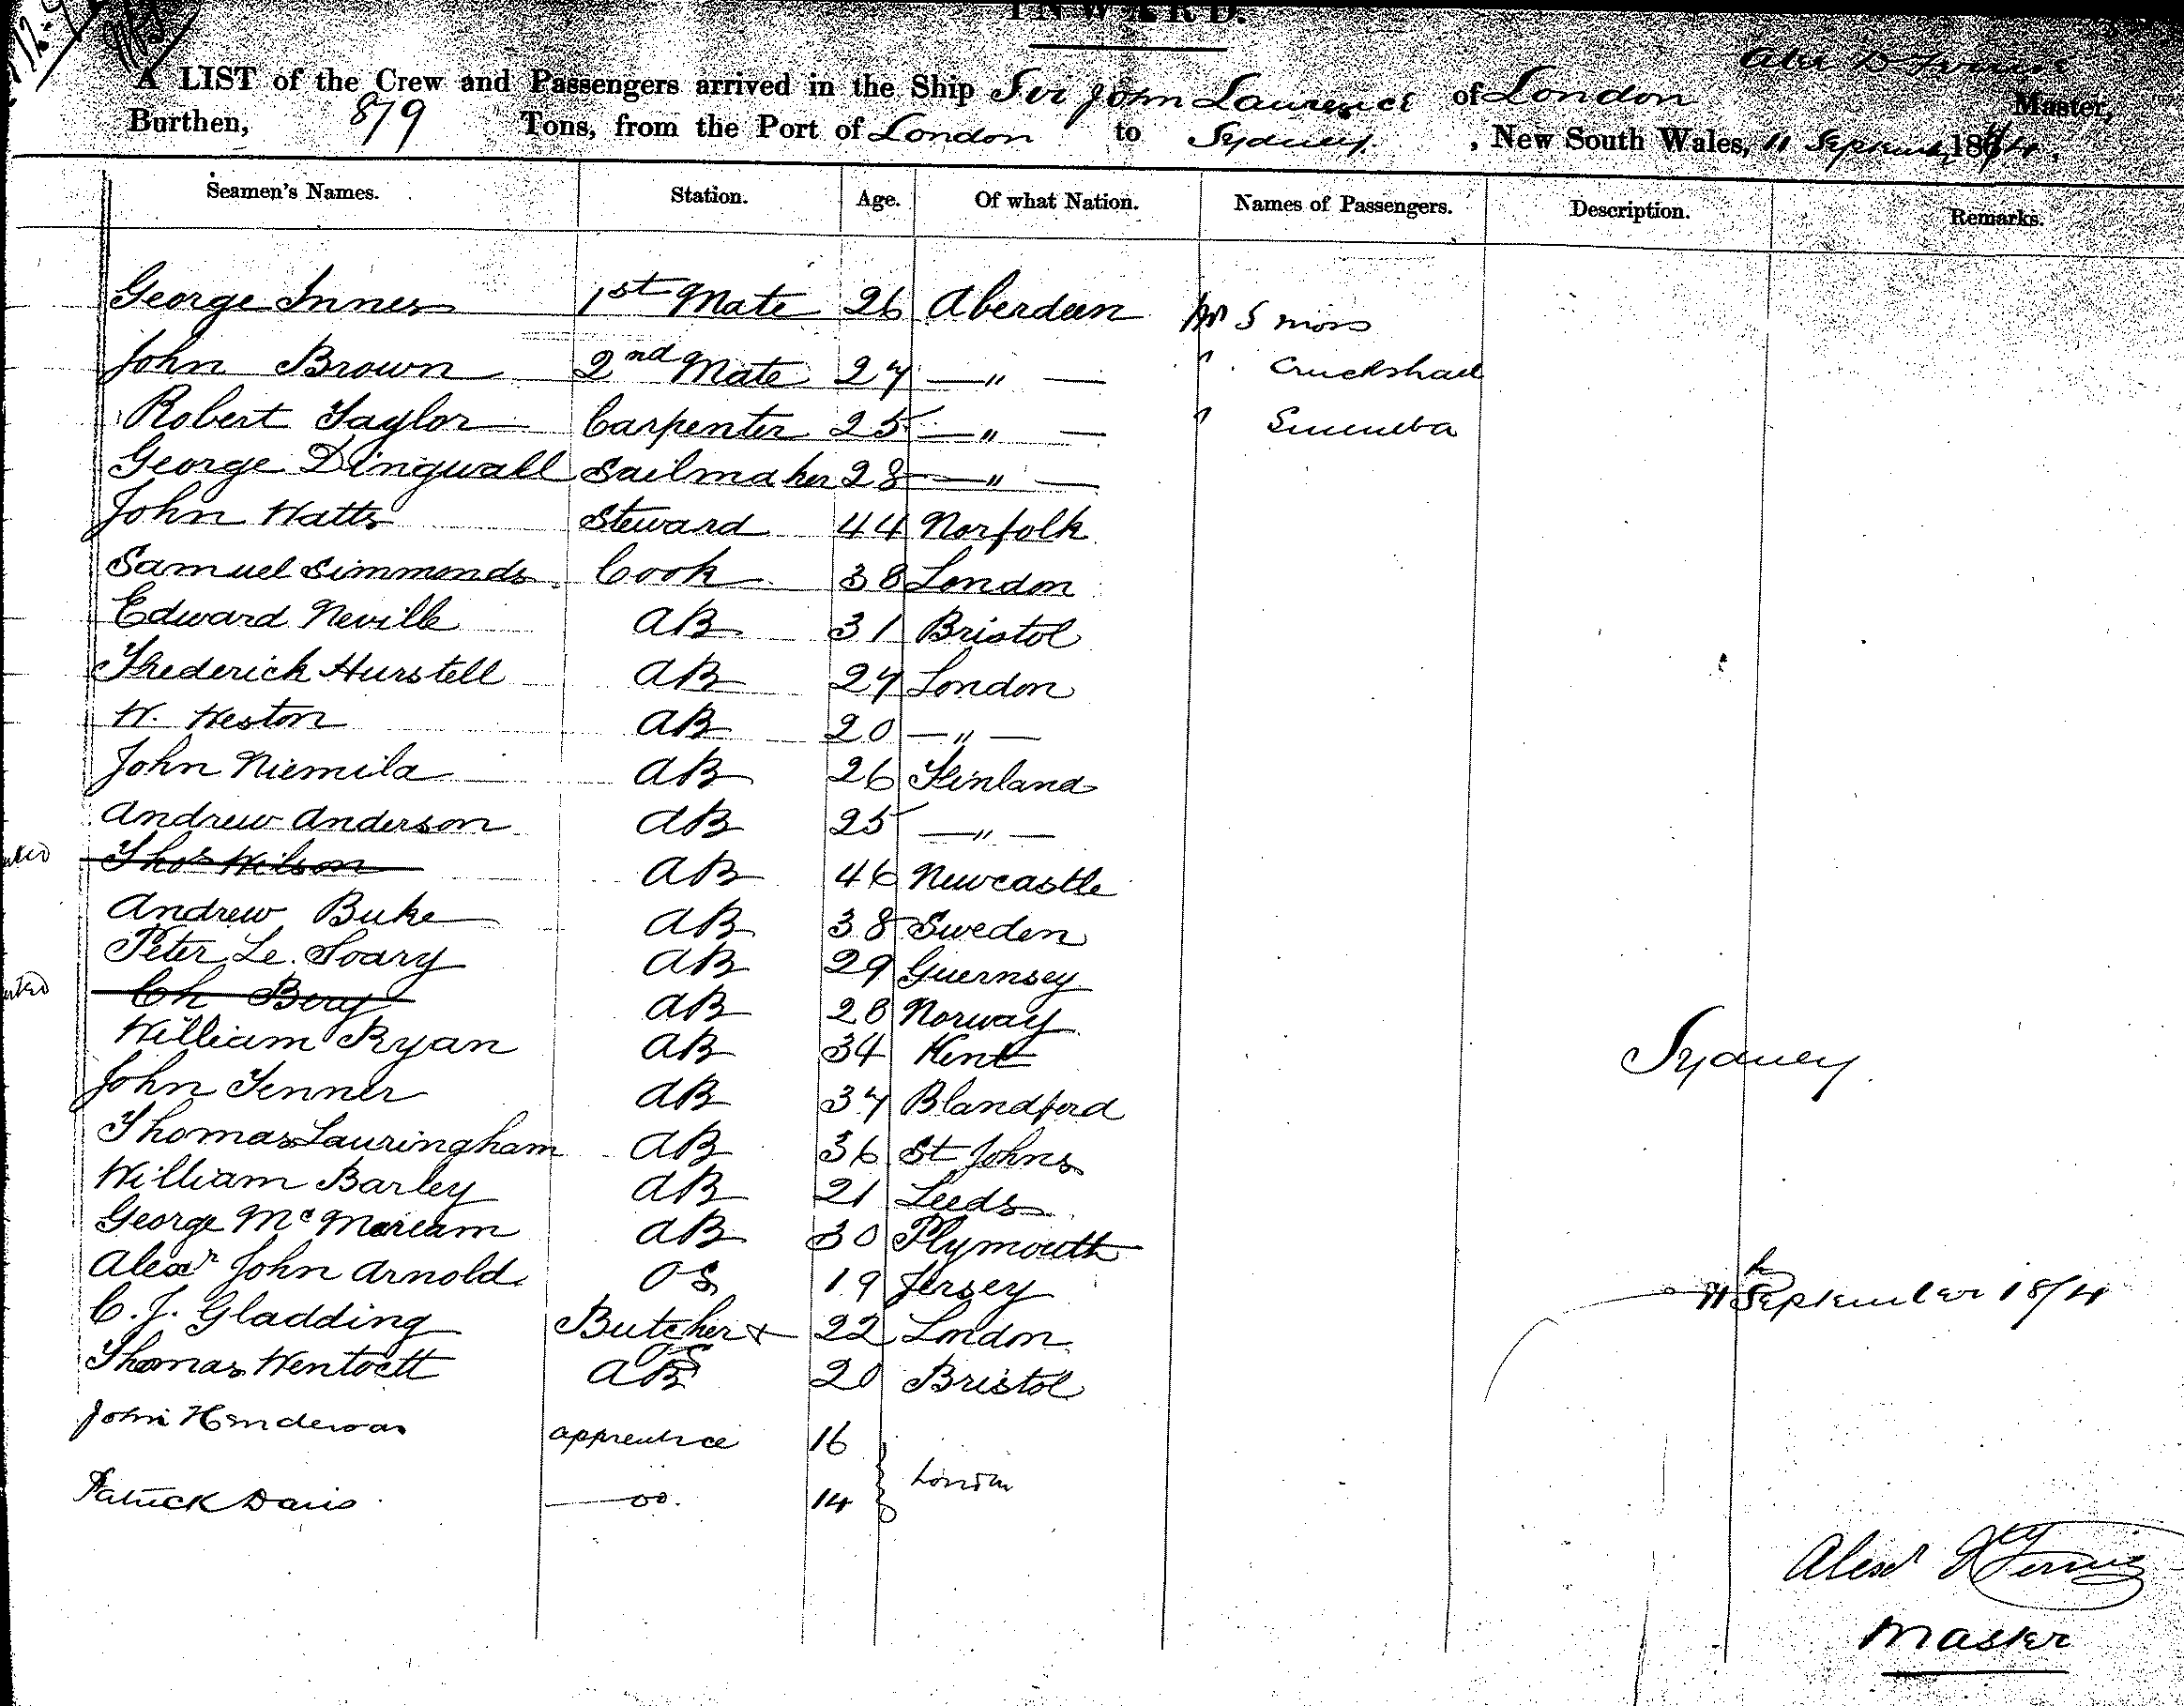 INWARD.
A LIST of the Crew and Passengers arrived in the Ship Sir John Laurence of London Master,
Burthen, 879 Tons, from the Port of London to Sydney, New South Wales, 11 September 1874.
Seamen's Names. Station. Age. Of what Nation. Names of Passengers. Description. Remarks.
George Innes 1st Mate 26 Aberdeen Mr
John Brown 2nd Mate 27 — " — "
Robert Taylor Carpenter 25 — " — "
George Dingwall Sailmaker 28 — " —
John Watts Steward 44 Norfolk
Samuel Simmonds Cook 38 London
Edward Neville AB 31 Bristol
Frederick Hurstell AB 27 London
W. Weston AB 20 — " —
John Niemila AB 26 Finland
Andrew Anderson AB 25 — " —
Thos Wilson AB 46 Newcastle
Andrew Buke AB 38 Sweden
Peter Le. Soary AB 29 Guernsey
Ch Berg AB 28 Norway
William Ryan AB 34 Kent
Sydney
John Fenner AB 37 Blandford
Thomas Lauringham AB 36 St Johns
William Barley AB 21 Leeds
George Mc AB 30 Plymouth
Alexr John Arnold OS 19 Jersey
11th September 1874
C. J. Gladding Butcher & OS 22 London
Thomas AB 20 Bristol
John Henderson apprentice 16
London
Patrick Davis — do. 14
Alexr
Master